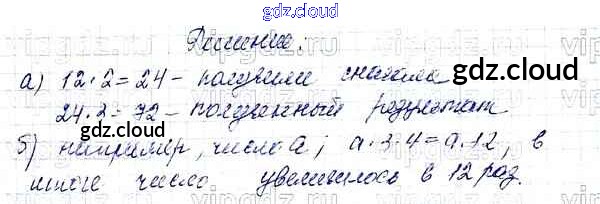 gdz.cloud
Решение:
а) 12·2=24 – получили сначала
gdz.cloud
24·3=72 – полученный результат
gdz.cloud
б) например, число a; a·3·4=a·12, в
итоге число увеличилось в 12 раз.
gdz.cloud